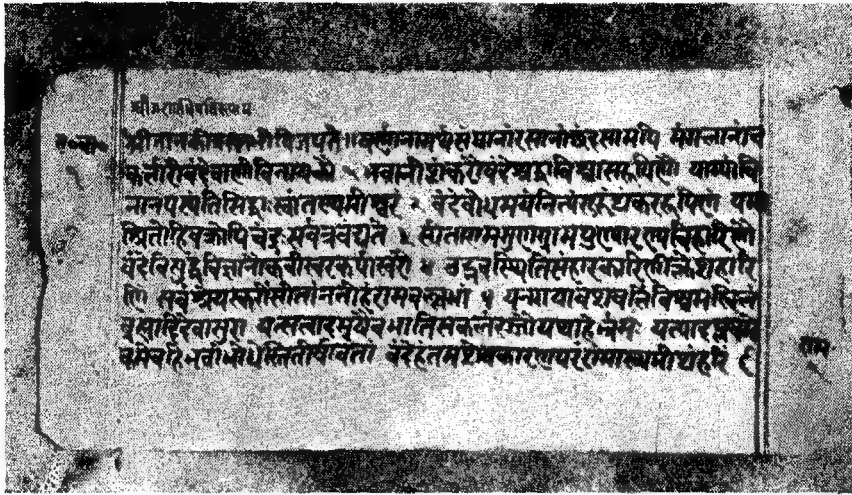 श्रीजानकीवल्लभो विजयते ॥ वर्णानामर्थसंघानां रसानां छंदसामपि मंगलानां च
कर्तारौ वंदे वाणीविनायकौ १ भवानीशंकरौ वंदे श्रद्धाविश्वासरूपिणौ याभ्यां वि
ना न पश्यंति सिद्धाः स्वांतस्थमीश्वरं २ वंदे बोधमयं नित्यं गुरुं शंकररूपिणं यमा
श्रितो हि वक्रोपि चंद्रः सर्वत्र वंद्यते ३ सीतारामगुणग्रामपुण्यारण्यविहारिणौ
वंदे विशुद्धविज्ञानौ कवीस्वरकपीस्वरौ ४ उद्भवस्थितिसंहारकारिणीं क्लेशहारि
णीं सर्वश्रेयस्करीं सीतां नतोहं रामवल्लभां ५ यन्मायावशवर्ति विश्वमखिलं
ब्रह्मादिदेवासुरा यत्सत्वादमृषैव भाति सकलं रज्जौ यथाहेर्भ्रमः यत्पादप्लव
वमेव हि भवांभोधेस्तितीर्षावतां वंदेहं तमशेषकारणपरं रामाख्यमीशं हरिं ६
राम